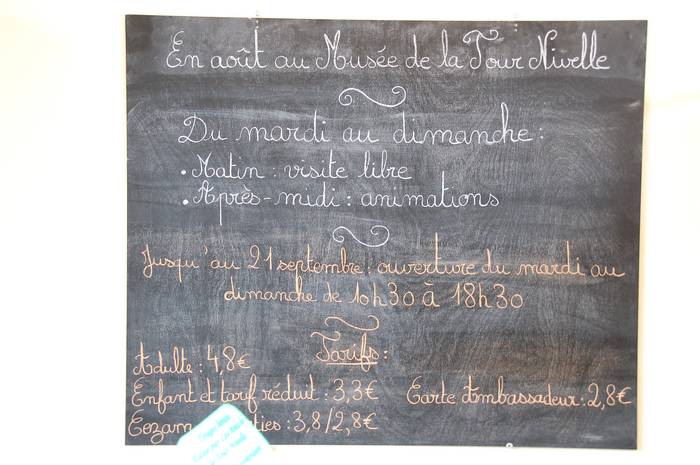 En août au Musée de la Tour Nivelle
Du mardi au dimanche :
• Matin : visite libre
• Après-midi : animations
Jusqu'au 21 septembre : ouverture du mardi au
dimanche de 10h30 à 18h30
Tarifs :
Adulte : 4,8€
Enfant et tarif réduit : 3,3€
Carte Ambassadeur : 2,8€
: 3,8/2,8€